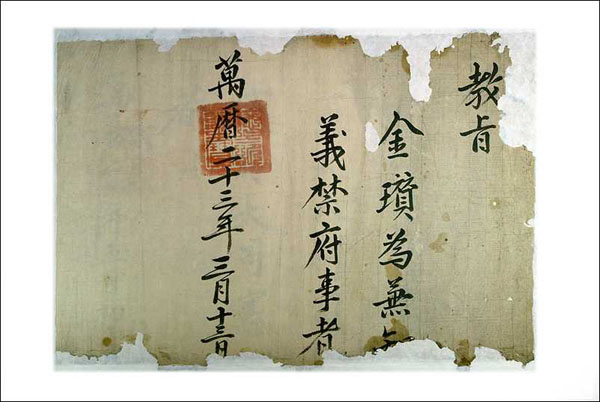 教旨
金瓚為兼
義禁府事者
萬曆二十三年三月十三日